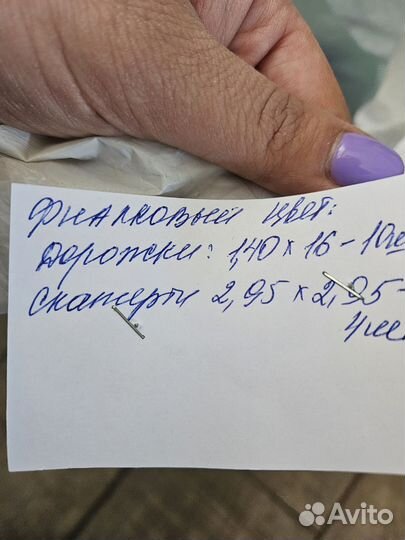 Фиалковый цвет:
Дорожки: 1,40 х 16 - 10ш
Скатерти 2,95 х 2,95 -
4ш
Avito